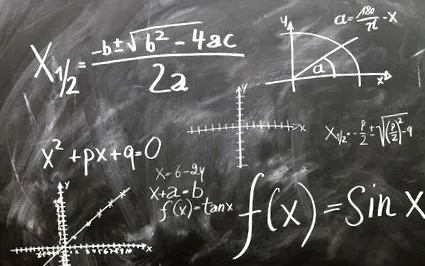 X₁/₂ = (-b ± √(b² - 4ac)) / 2a
a = 180/π · x
y
x
a
y
x
X₁/₂ = -p/2 ± √((p/2)² - q
x² + px + q = 0
x = 6 - 2y
x + a = b
f(x) = tanx
f(x) = Sin x
y
x